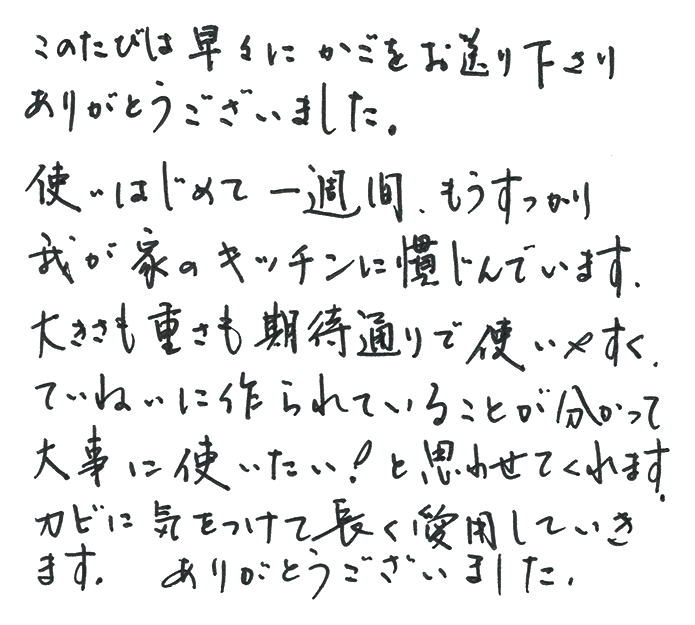 このたびは早々にかごをお送り下さり
ありがとうございました。
使いはじめて一週間、もうすっかり
我が家のキッチンに慣じんでいます。
大きさも重さも期待通りで使いやすく、
ていねいに作られていることが分かって
大事に使いたい!と思わせてくれます。
カビに気をつけて長く愛用していき
ます。 ありがとうございました。